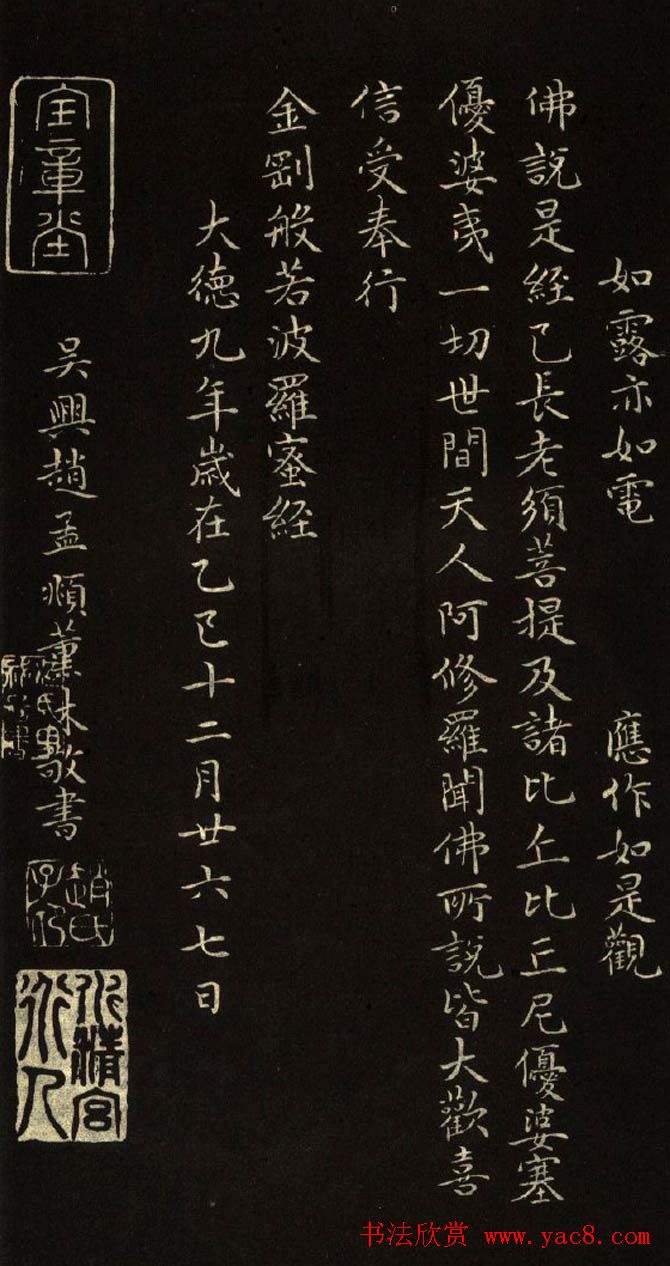 如露亦如電　應作如是觀
佛說是経已長老須菩提及諸比丘比丘尼優婆塞
優婆夷一切世間天人阿修羅聞佛所說皆大歡喜
信受奉行
金剛般若波羅蜜経
大德九年歲在乙巳十二月廿六七日
吳興趙孟頫薰沐敬書
趙氏子昂
水精宮道人
书法欣赏 www.yac8.com